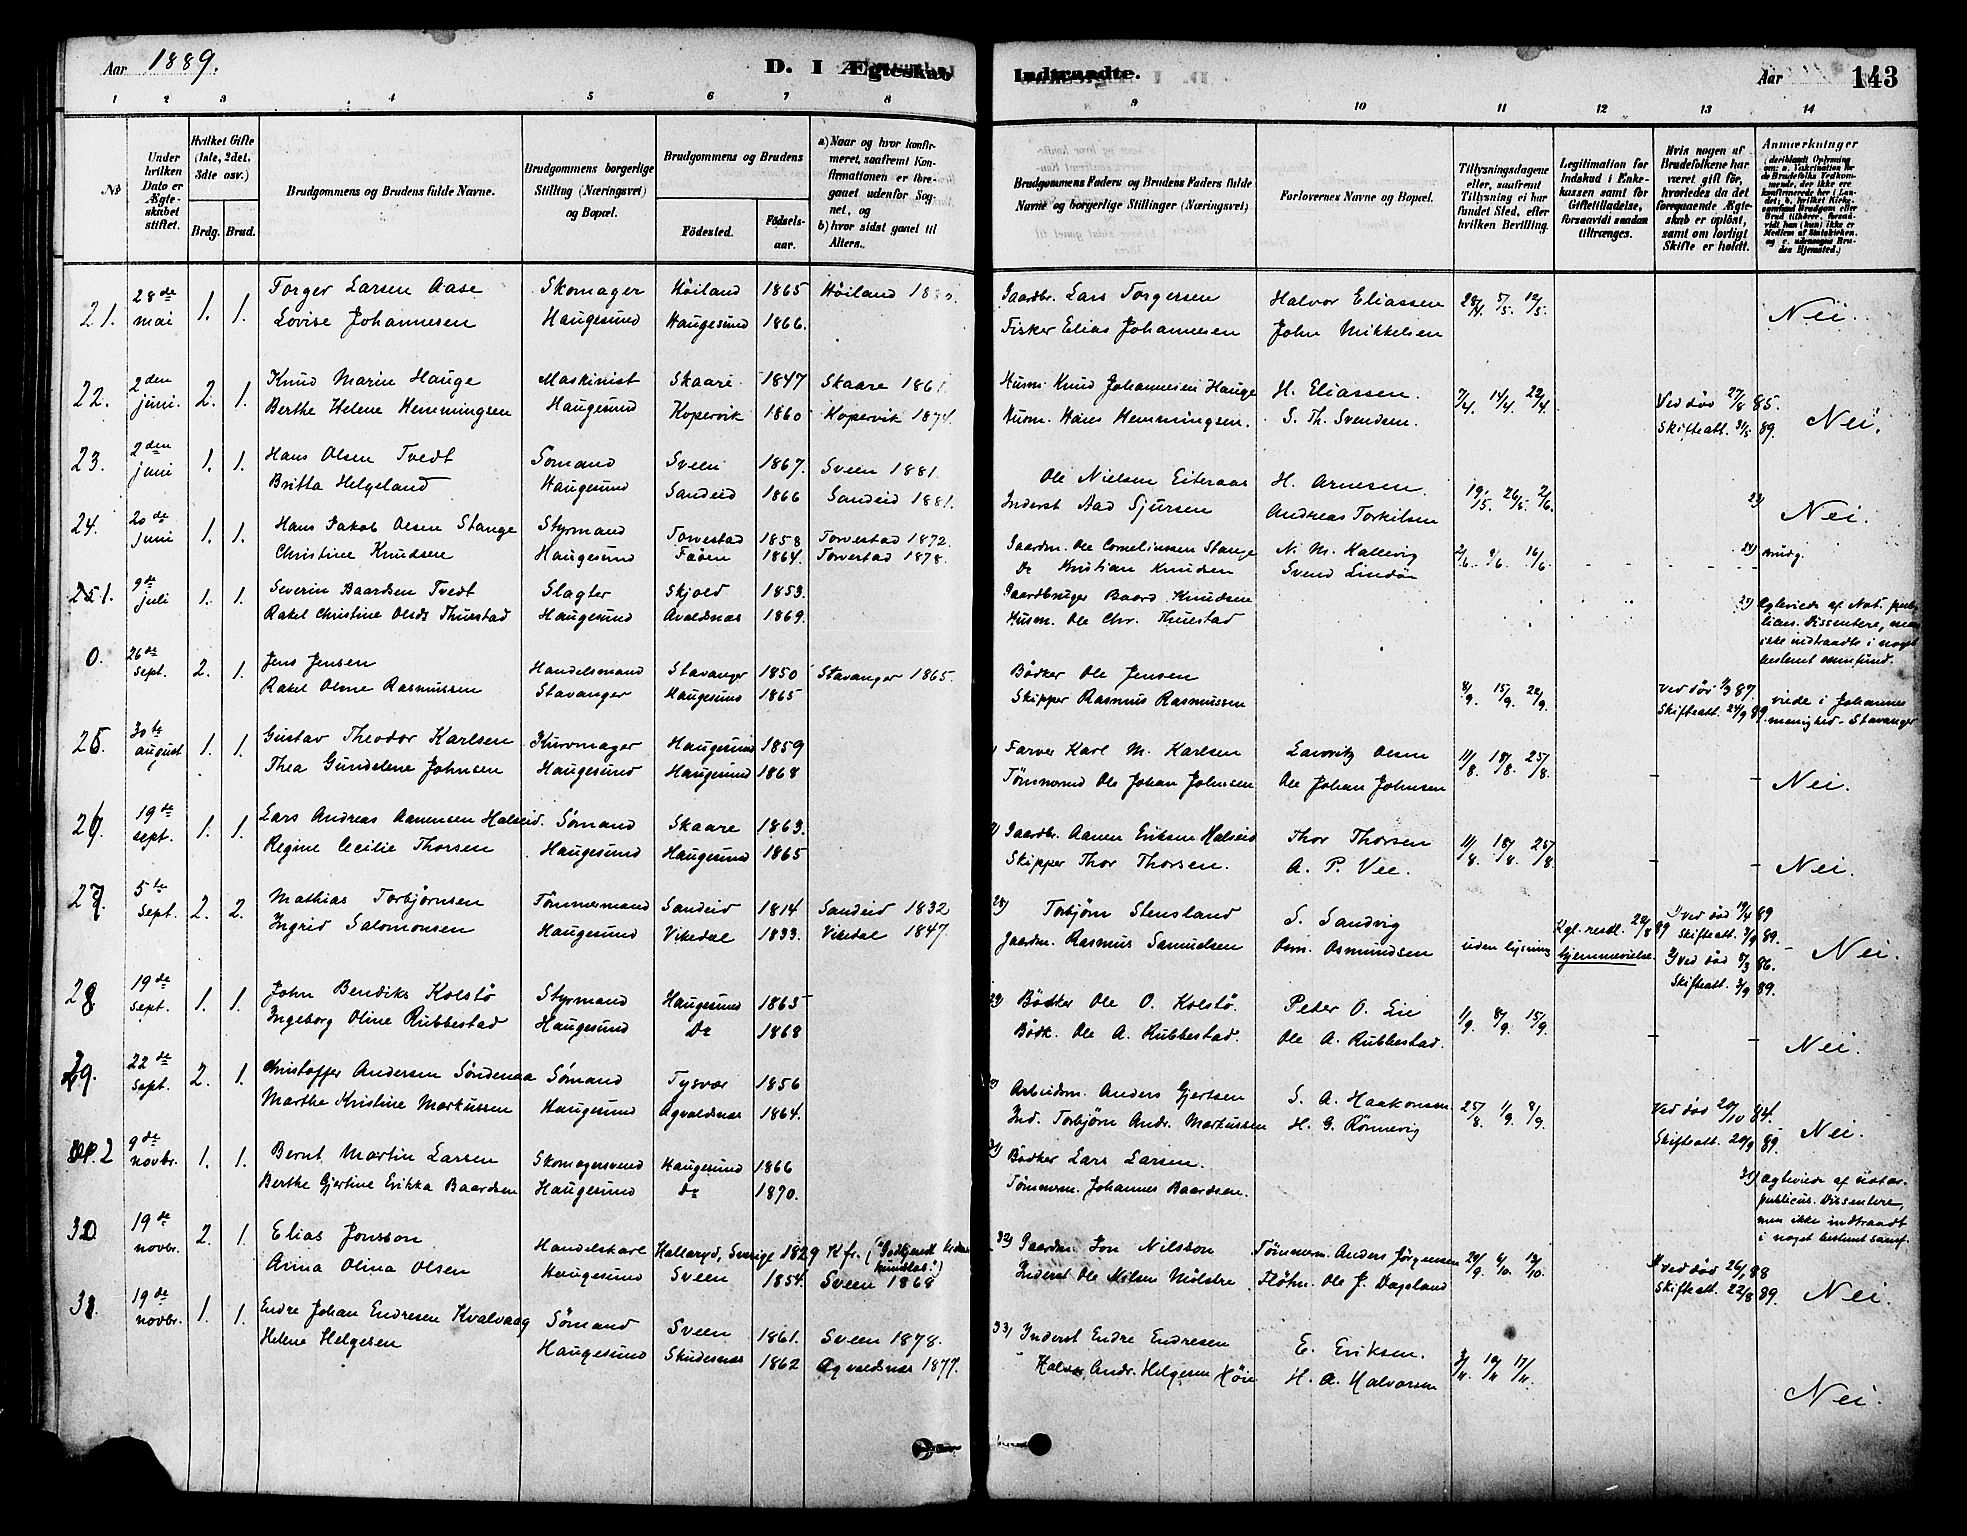 Aar 1889.
D. I Ægteskab
Indtraadte.
Aar
143
1 2 3 4 5 6 7 8
9 10 11 12 13 14
No
Under hvilken Dato er Ægteskabet stiftet.
Hvilket Gifte (1ste, 2det, 3die osv.)
Brdg. Brud.
Brudgommens og Brudens fulde Navne.
Brudgommens borgerlige Stilling (Næringsvei) og Bopæl.
Brudgommens og Brudens
Fødested.
Fødselsaar.
a) Naar og hvor konfirmeret, saafremt Konfirmationen er foregaaet udenfor Sognet, og
b) hvor sidst gaaet til Alters.
Brudgommens Faders og Brudens Faders fulde Navne og borgerlige Stillinger (Næringsvei)
Forlovernes Navne og Bopæl.
Tillysningsdagene eller, saafremt Tillysning ei har fundet Sted, efter hvilken Bevilling.
Legitimation for Indskud i Enkekassen samt for Giftetilladelse, forsaavidt saadan tiltrænges.
Hvis nogen af Brudefolkene har været gift før, hvorledes da det foregaaende Ægteskab er opløst, samt om lovligt Skifte er holdt.
Anmærkninger
21. 28de mai 1. 1. Torger Larsen Aase Skomager Høiland 1865 Høiland Gaardbr. Lars Torgersen Halvor Eliassen 28/4 5/5 12/5 Nei.
Lovise Johannesen Haugesund Haugesund 1866. Fisker Elias Johannesen John Mikkelsen
22. 2den juni. 2. 1. Knud Marin Hauge Maskinist Skaare 1847 Skaare 1861. Husm. Knud Johannesen Hauge H. Eliassen. 7/4. 14/4. 22/4. Ved død 27/8 85.
Berthe Helene Hemmingsen Haugesund Kopervik 1860 Kopervik 1874. Husm. Hans Hemmingsen. S. Th. Svendsen. Skifteatt. 31/5 89. Nei.
23. 2den juni 1. 1. Hans Olsen Tvedt Sømand Sveen 1867. Sveen 1881. Ole Nielsen Eiteraas H. Arnesen. 19/5. 26/5. 2/6. Nei.
Britta Helgeland Haugesund Sandeid 1866 Sandeid 1881. Inderst Aad Sjursen Andreas Torkilsen
24. 20de juni 1. 1. Hans Jakob Olsen Stange Styrmand Torvestad 1858 Torvestad 1872. Gaardm. Ole Corneliussen Stange N. M. Kallevig 2/6. 9/6. 16/6. 24)
Christine Knudsen Haugesund Faøen 1864. Torvestad 1878. Do Kristian Knudsen Svend Lindøe
1. 9de juli 1. 1. Severin Baardsen Tvedt Slagter Skjold 1853. Gaardbruger Baard Knudsen
Rakel Christine Olsdr Thuestad Haugesund Avaldsnæs 1869. Husm. Ole Chr. Thuestad
25) Egteviede af Not. publicus. Dissentere, men ikke indtraadte i noget bestemt samfund.
0. 26de sept. 2. 1. Jens Jensen Handelsmand Stavanger 1850 Stavanger 1865. Bødker Ole Jensen 8/9. 15/9. 22/9. Ved død 87.
Rakel Oline Rasmussen Stavanger Haugesund 1865 Skipper Rasmus Rasmussen Skifteatt. 24/9 89. viede i Johannes menighed - Stavanger
25. 30te august 1. 1. Gustav Theodor Karlsen Kurvmager Haugesund 1859 Farver Karl M. Karlsen Lauritz Olsen 11/8. 18/8. 25/8.
Thea Gundelene Johnsen Haugesund Haugesund 1868 Tømmermd Ole Johan Johnsen Ole Johan Johnsen Nei.
26. 19de sept. 1. 1. Lars Andreas Aanensen Halseid. Sømand Skaare 1863. Gaardbr. Aanen Eriksen Halseid Thor Thorsen 11/8. 18/8. 25/8.
Regine Cecilie Thorsen Haugesund Haugesund 1865 Skipper Thor Thorsen. A. P. Vee. Nei.
27. 5te Sept. 2. 2. Mathias Torbjørnsen Tømmermand Sandeid 1814 Sandeid 1832 28) Torbjørn Stensland S. Sandvig Kgl. resol. 22/8 89 1) Ved død 19/4 89
Ingrid Salomonsen Haugesund Vikedal 1833. Vikedal 1847. Gaardm. Rasmus Samuelsen Osm. Osmundsen uden lysning hjemmevielse. Skifteatt. 3/9 89. 2) ved død 8/3 86. Skifteatt. 3/9 89. Nei.
28 19de sept. 1. 1. John Bendiks Kolstø Styrmand Haugesund 1865 29) Bødker Ole O. Kolstø. Peter O. Lie 1/9. 8/9. 15/9.
Ingeborg Oline Rubbestad Haugesund Do 1868 Bødk. Ole A. Rubbestad. Ole A. Rubbestad. Nei.
29. 22de sept. 2. 1. Christoffer Andersen Søndenaa Sømand Tysvær 1856 Arbeidsm. Anders Gjertsen S. A. Haakonsen 25/8. 1/9. 8/9. Ved død 20/10 84.
Marthe Kristine Markussen Haugesund Agvaldsnæs 1864. Ind. Torbjørn Andr. Markussen H. G. Rønnevig Skifteatt. 20/9 89. Nei.
2 9de novbr. 1. 1. Bernt Martin Larsen Skomagersvend Haugesund 1866 31) Bødker Lars Larsen.
Berthe Gjertine Erikka Baardsen Haugesund do 1870. Tømmerm. Johannes Baardsen.
31) Egteviede af notar. publicus. Dissentere, men ikke indtraadt i noget bestemt samf.
30 19de novbr. 2. 1. Elias Jonsson Handelskarl Hallaryd, Sverige 1829 Kfr. ("Godkjendt kristendomskundskab.") 32) Gaardm. Jon Nilsson Tømmerm. Anders Jørgensen 29/9 6/10. 13/10. 1) Ved død 26/1 88
Anna Olina Olsen Haugesund Sveen 1854. Sveen 1869 Inderst Ole Nilsen Mølstre. Fløtm. Ole J. Dagsland Skifteatt. 22/8 89. Nei.
31. 19de novbr. 1. 1. Endre Johan Endresen Kvalvaag Sømand Sveen 1861. Sveen 1878. 33) Inderst Endre Endresen E. Eriksen. 3/11 10/11 17/11.
Helene Helgesen Haugesund Skudesnæs 1862 Agvaldsnæs 1877. Halvor Andr. Helgesen Høie H. A. Halvorsen Nei.